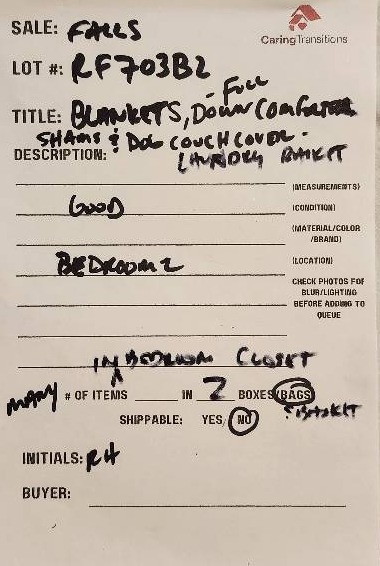 SALE: FALLS
CaringTransitions
LOT #: RF703B2
- FULL
TITLE: BLANKETS, DOWN COMFORTER
SHAMS & DOG COUCH COVER -
DESCRIPTION: LAUNDRY BASKET
(MEASUREMENTS)
GOOD (CONDITION)
(MATERIAL/COLOR
/BRAND)
BEDROOM 2 (LOCATION)
CHECK PHOTOS FOR
BLUR/LIGHTING
BEFORE ADDING TO
QUEUE
IN BEDROOM CLOSET
MANY # OF ITEMS IN 2 BOXES/BAGS
& BASKET
SHIPPABLE: YES/NO
INITIALS: RH
BUYER: